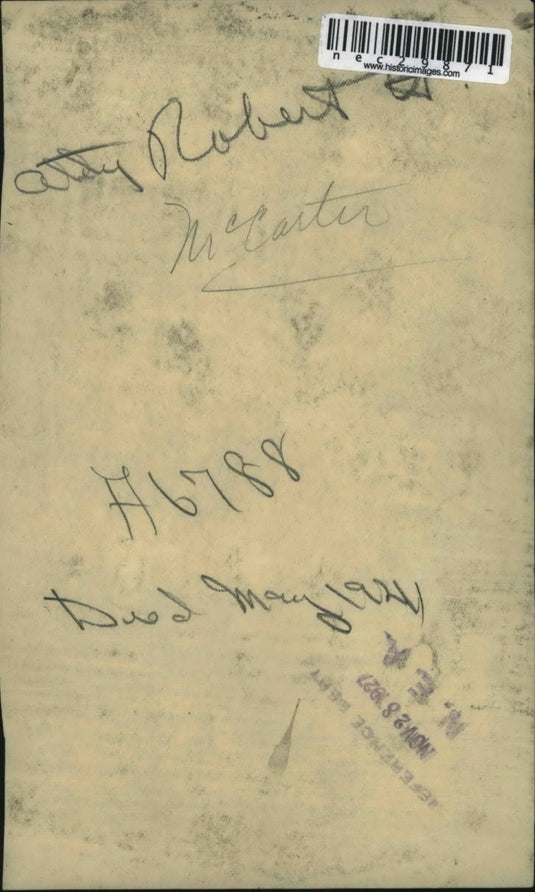 nec29871
www.historicimages.com
atty Robert H.
McCarter
H6788
Died May 1941
N. E. A.
NOV 28 1927
REFERENCE DEPT